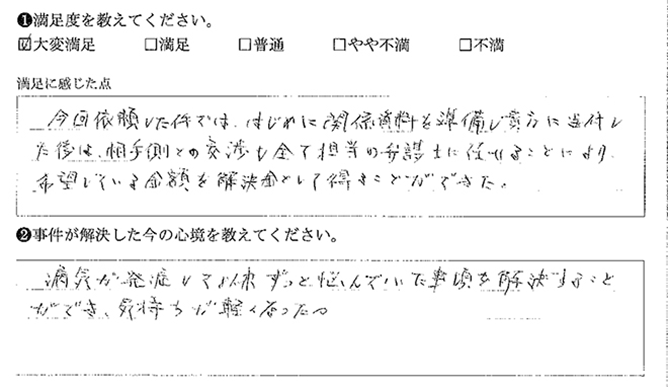 ❶満足度を教えてください。
☑大変満足 □満足 □普通 □やや不満 □不満
満足に感じた点
今回依頼した件では、はじめに関係資料を準備し貴方に送付し
た後は、相手側との交渉も全て担当の弁護士に任せることにより、
希望している金額を解決金として得ることができた。
❷事件が解決した今の心境を教えてください。
病気が発症して以来ずっと悩んでいた事項を解決すること
ができ、気持ちが軽くなった。